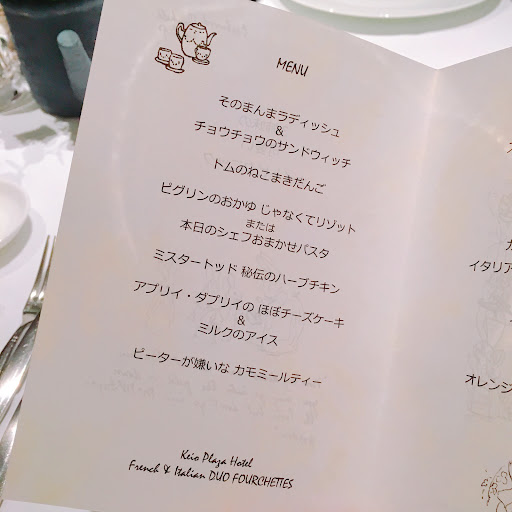 MENU
そのまんまラディッシュ
&
チョウチョウのサンドウィッチ
トムのねこまきだんご
ピグリンのおかゆ じゃなくてリゾット
または
本日のシェフおまかせパスタ
ミスタートッド 秘伝のハーブチキン
アプリイ・ダプリイの ほぼチーズケーキ
&
ミルクのアイス
ピーターが嫌いな カモミールティー
Keio Plaza Hotel
French & Italian DUO FOURCHETTES
イタリア
オレンジ